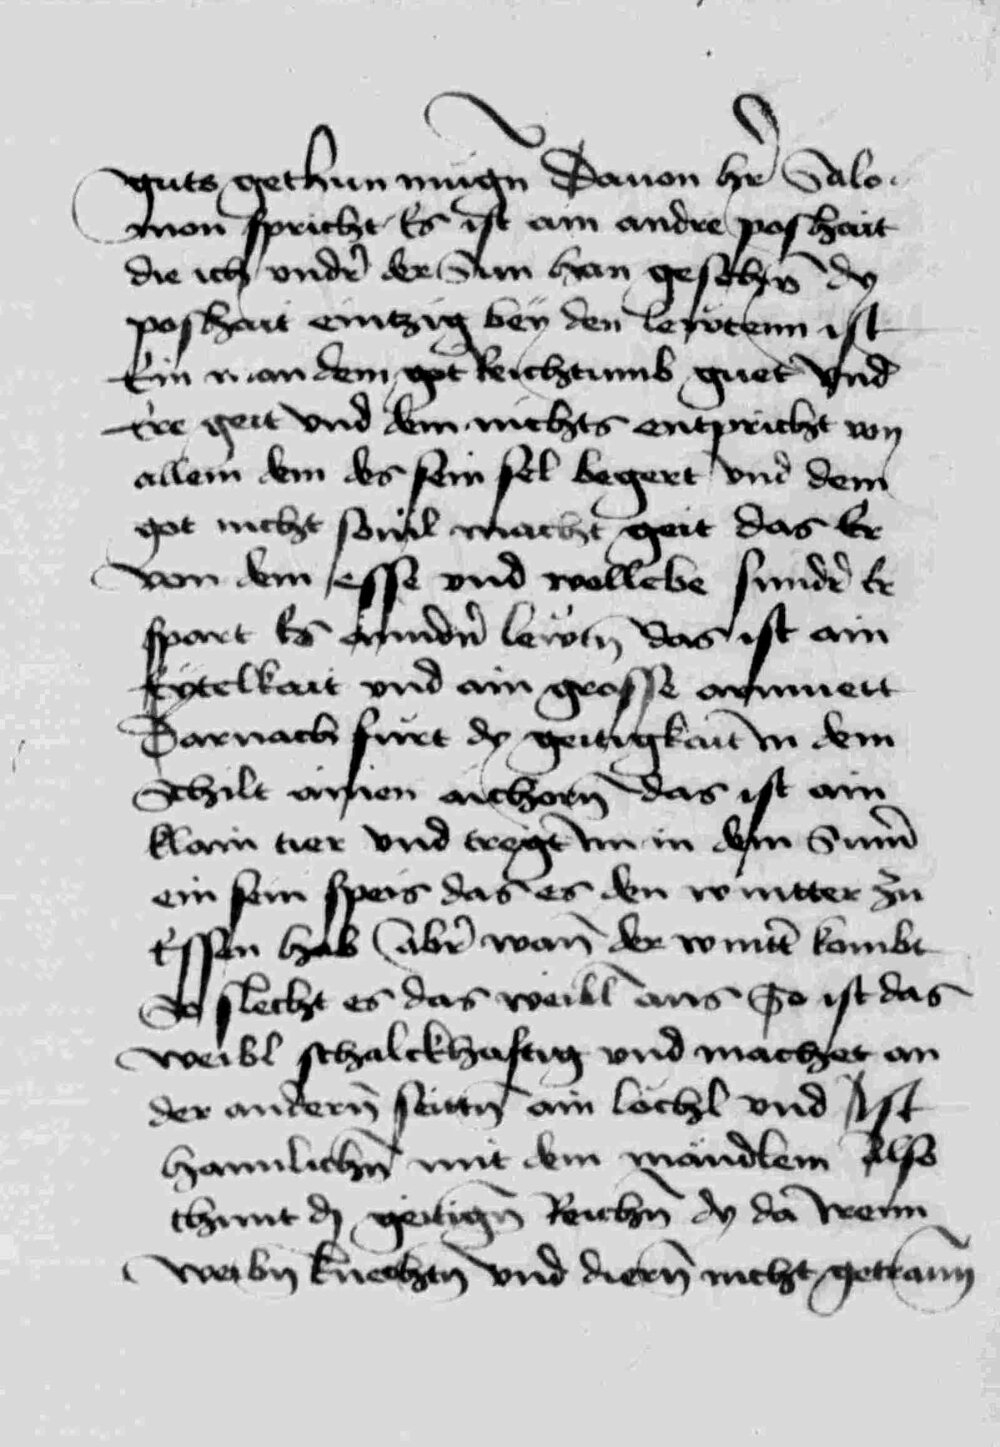 guts gethun mugn Dauon hr̄ Salo
mon spricht Es ist ain andre poshait
die ich vndr̄ der Sun han gesehn̄ dy
poshait eintzig bey den lewtenn ist
Ein man dem got Reichtumb guet vnd
Ere geit vnd dem nichts entpricht von
allem dem des sein sel begert vnd dem
got nicht souil macht geit das Er
von dem esse vnd wollebe sundr̄ Er
spart Es anndn̄ lewtn̄ das ist ain
Eytelkait vnd ain grosse armuett
Darnach furt dy geitigkait in dem
Schilt ainen aichorn̄ das ist ain
klain tier vnd tregt im in dem Sum̄
ein sein speis das es den wintter zu
Essen hab Abr̄ wan̄ der wintt̄ kombt
So slecht es das weibl aus So ist das
weibl schalckhafftig vnd machet an
der andern̄ seittn̄ ain lochl vnd Ist
hamlichn̄ mit dem mandlem Also
thunt dy geitign̄ Reichn̄ dy da wenn
weibn̄ knechtn̄ vnd diern̄ nicht getraun̄